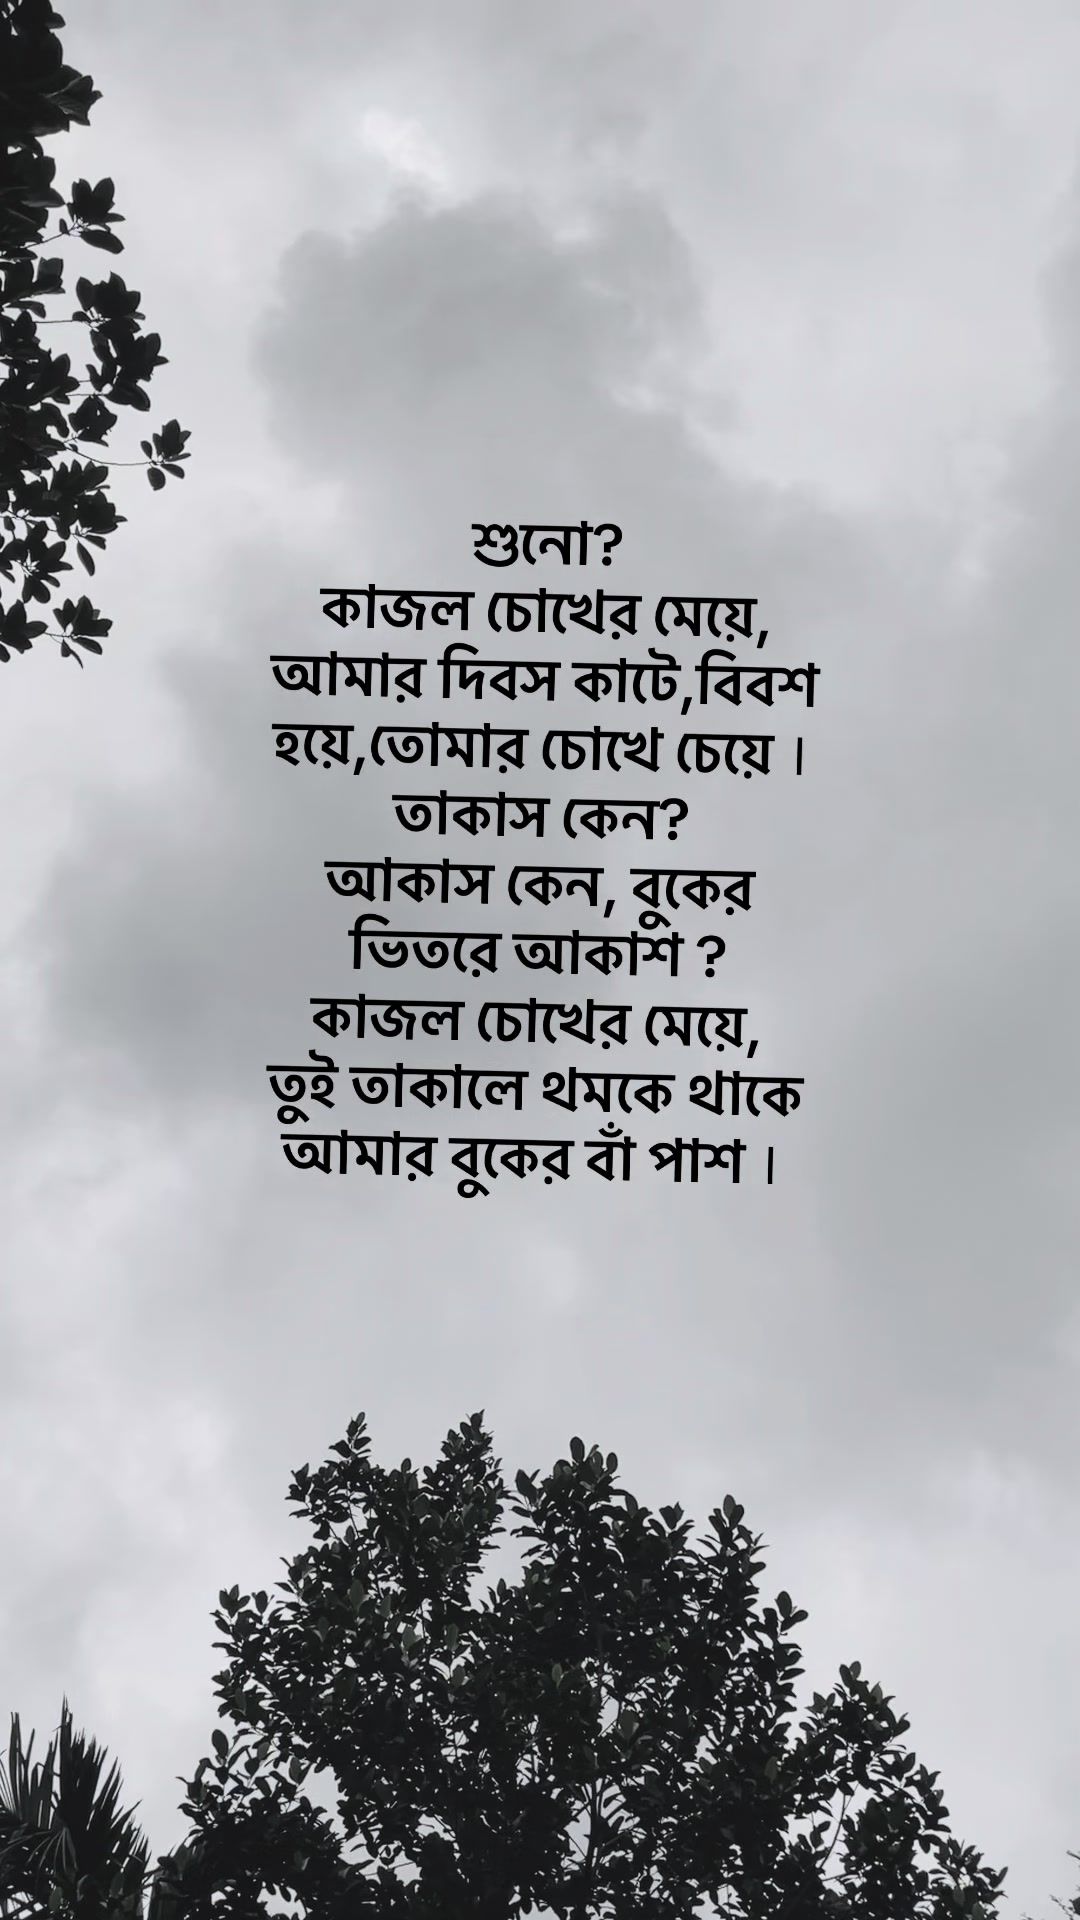 শুনো?
কাজল চোখের মেয়ে,
আমার দিবস কাটে,বিবশ
হয়ে,তোমার চোখে চেয়ে ।
তাকাস কেন?
আকাস কেন, বুকের
ভিতরে আকাশ ?
কাজল চোখের মেয়ে,
তুই তাকালে থমকে থাকে
আমার বুকের বাঁ পাশ ।